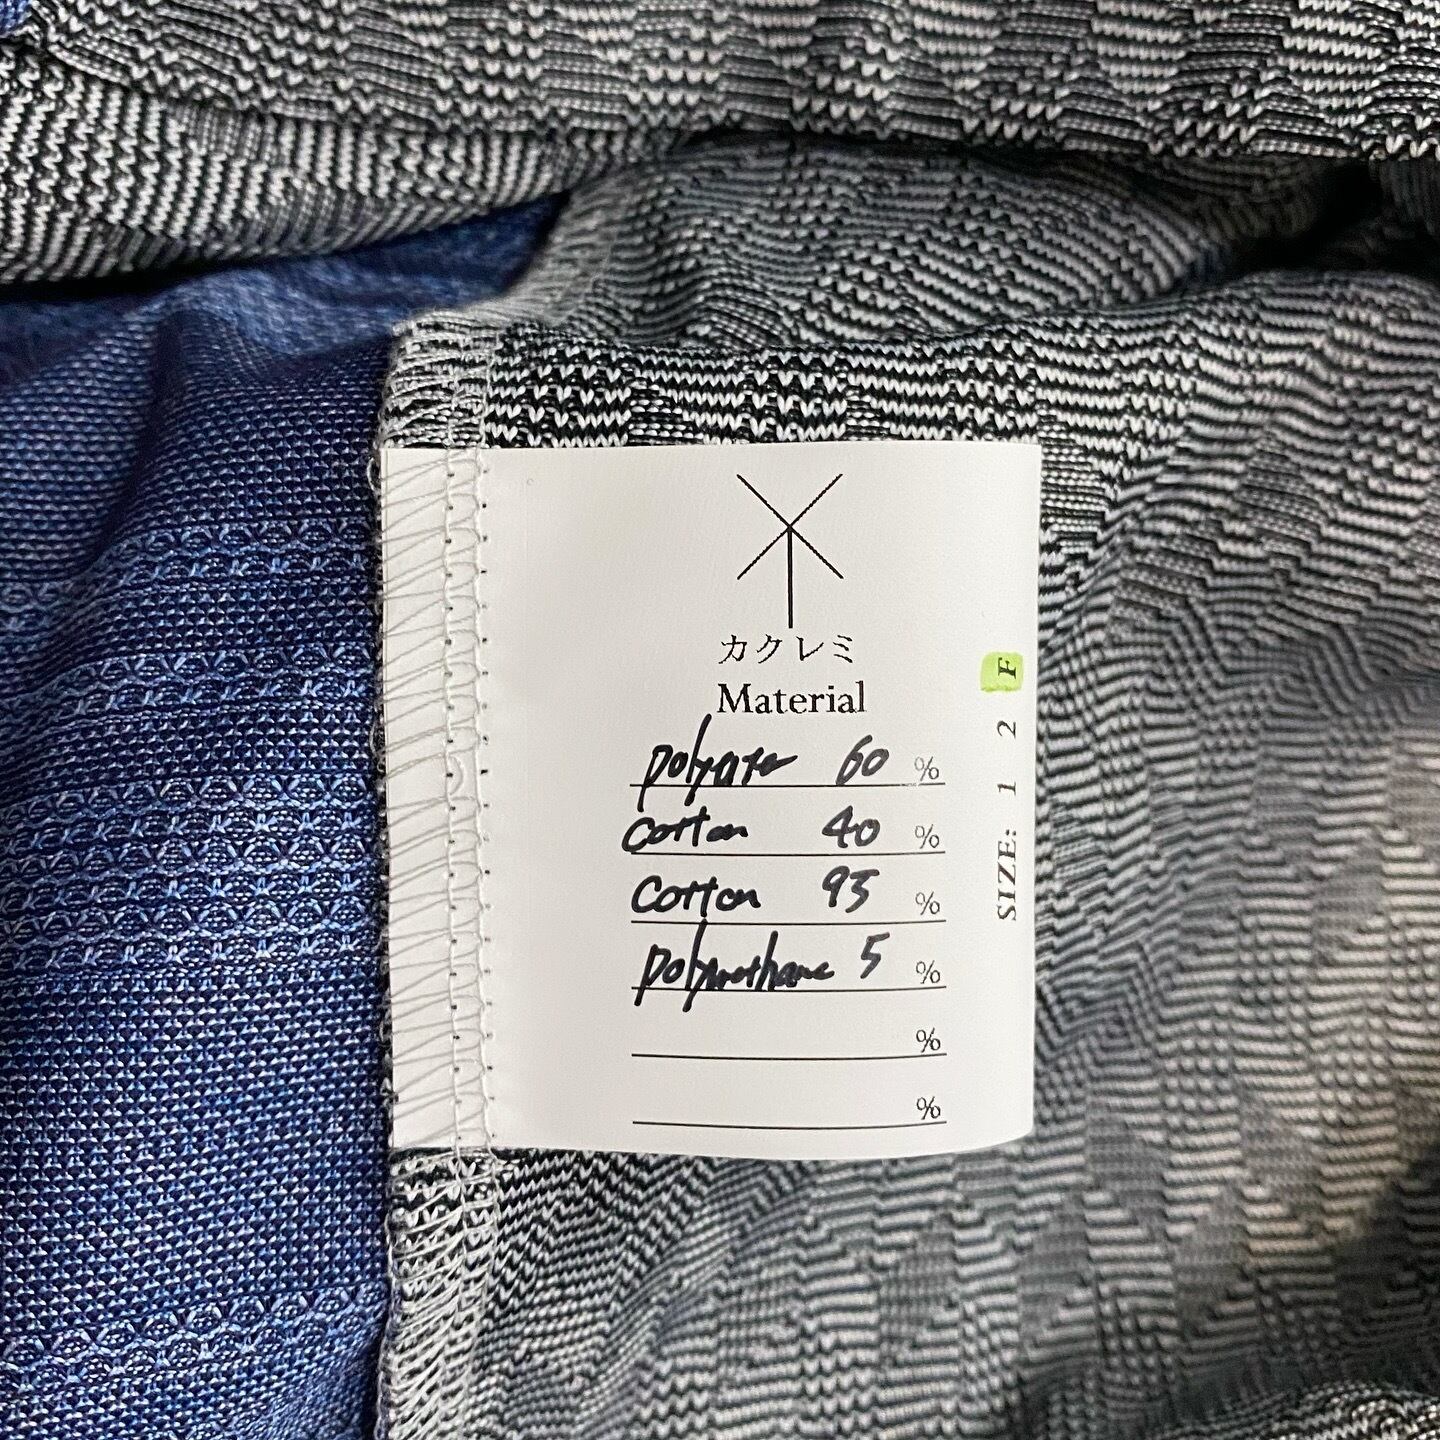 カクレミ
Material
polyester 60 %
cotton 40 %
cotton 95 %
polyurethane 5 %
%
%
SIZE: 1 2 F